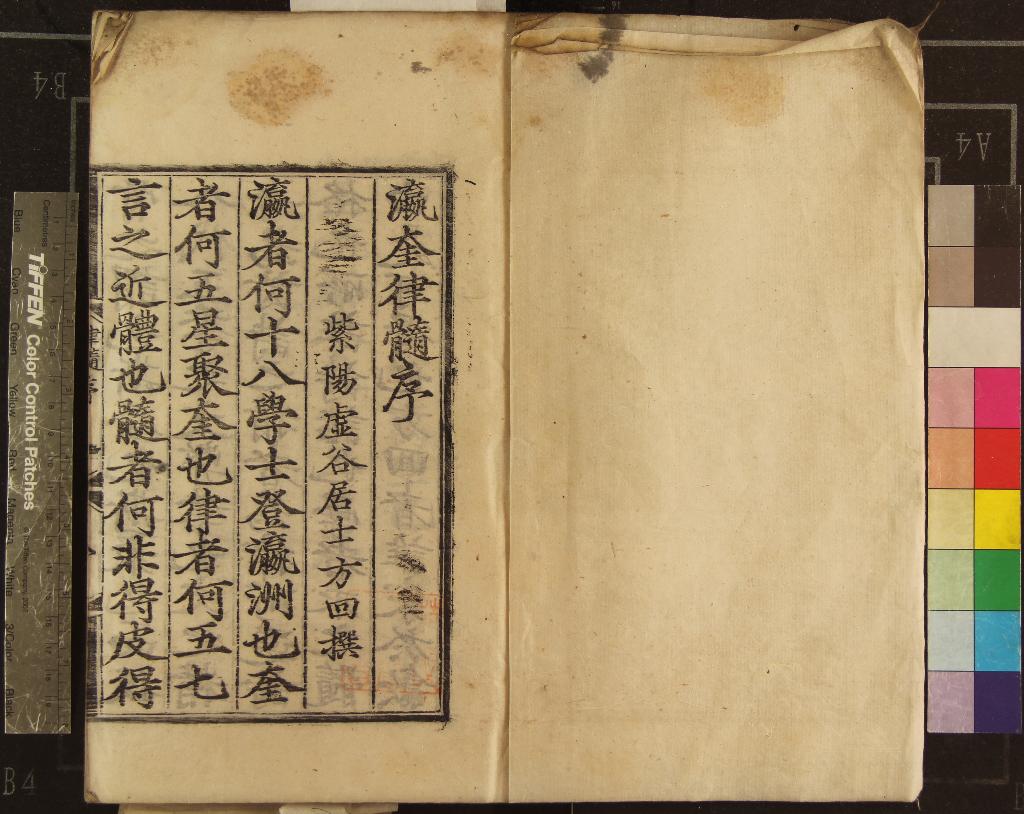 瀛奎律髓序
紫陽虛谷居士方回撰
瀛者何十八學士登瀛洲也奎
者何五星聚奎也律者何五七
言之近體也髓者何非得皮得
律髓序
TIFFEN Color Control Patches
Centimetres
Blue
Cyan
Green
Yellow
Red
Magenta
White
3/Color
Black
B4
A4
B4